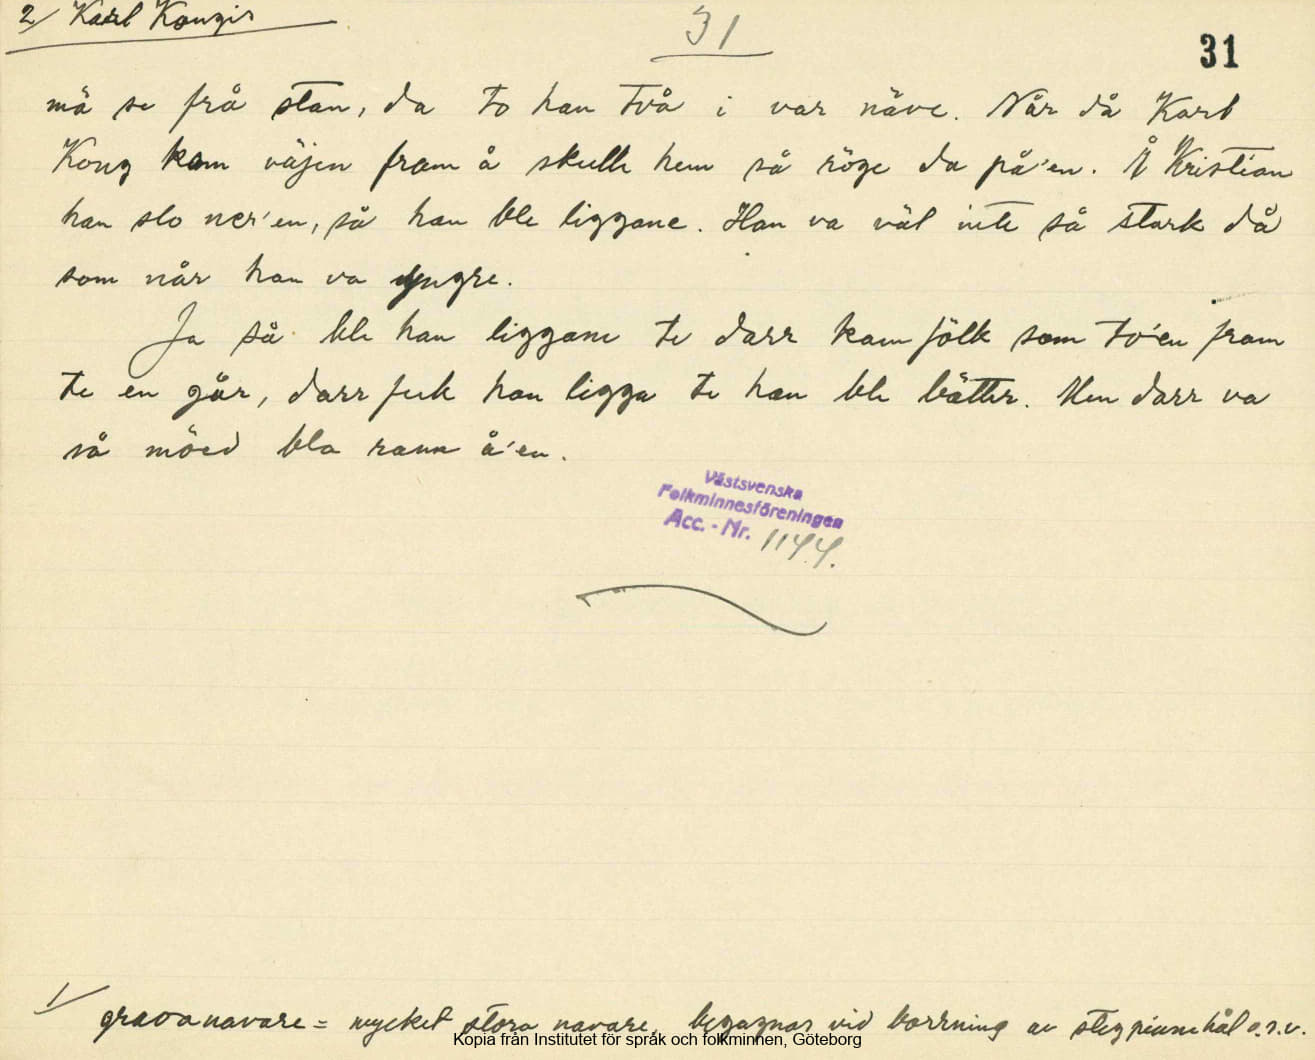 2/ Karl Kongis
31
31
mä se frå stan, da to han två i var näve. Når då Karl
Kong kom väjen fram å skulle hem så röge da på'en. Å Kristian
han slo ner'en, så han ble liggane. Han va väl inte så stark då
som når han va yngre.
Ja så ble han liggane te darr kom fölk som to'en fram
te en går, darr fick han ligga te han ble bätter. Men darr va
så möed blo rann å'en.
Västsvenska
Folkminnesföreningen
Acc. - Nr. 1144.
1/ gravanavare = mycket stora navare, begagnas vid borrning av stegpinnehål o.s.v.
Kopia från Institutet för språk och folkminnen, Göteborg